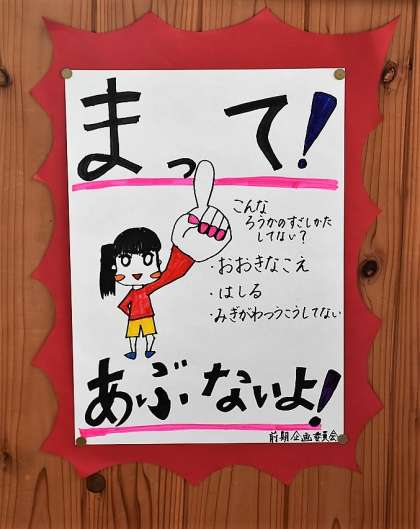 まって!
こんな
ろうかのすごしかた
してない?
・おおきなこえ
・はしる
・みぎがわつうこうしてない
あぶないよ!
前期企画委員会